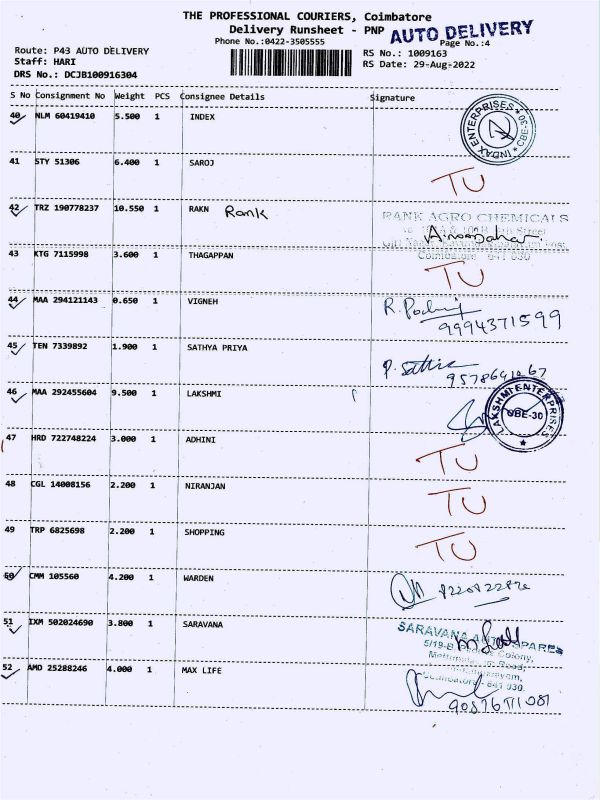 THE PROFESSIONAL COURIERS, Coimbatore
Delivery Runsheet - PNP AUTO DELIVERY
Phone No.:0422-3505555 Page No.:4
Route: P43 AUTO DELIVERY RS No.: 1009163
Staff: HARI RS Date: 29-Aug-2022
DRS No.: DCJB100916304
S No Consignment No Weight PCS Consignee Details Signature
40 NLM 60419410 5.500 1 INDEX
INDAX ENTERPRISES CBE-30
41 STY 51306 6.400 1 SAROJ
TU
42 TRZ 190778237 10.550 1 RAKN Rank
RANK AGRO CHEMICALS
Street
Coimbatore 641 030
43 KTG 7115998 3.600 1 THAGAPPAN
TU
44 MAA 294121143 0.650 1 VIGNEH
R.
9994371599
45 TEN 7339892 1.900 1 SATHYA PRIYA
P. Sathia
46 MAA 292455604 9.500 1 LAKSHMI
LAKSHMI ENTERPRISES CBE-30
47 HRD 722748224 3.000 1 ADHINI
TU
48 CGL 14008156 2.200 1 NIRANJAN
TU
49 TRP 6825698 2.200 1 SHOPPING
TU
50 CMM 105560 4.200 1 WARDEN
51 IXM 502024690 3.800 1 SARAVANA
SARAVANA AUTO SPARES
5/19-B Colony,
Road,
Coimbatore - 641 030.
52 AMD 25288246 4.000 1 MAX LIFE